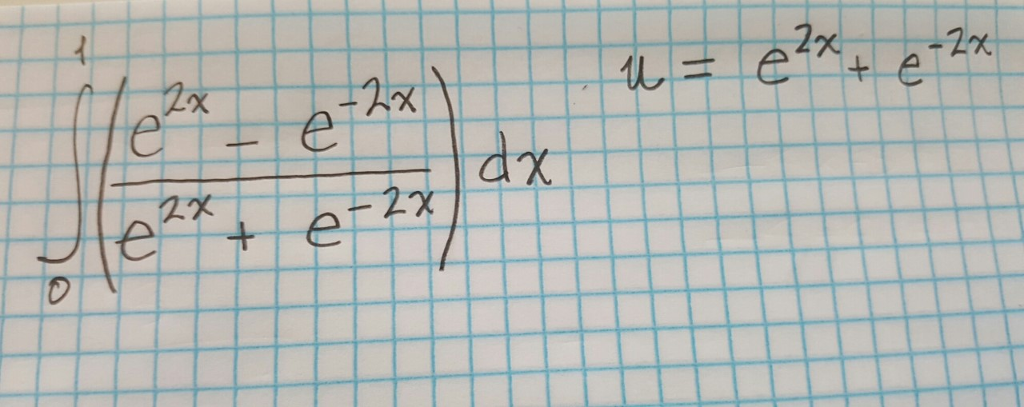 ∫₀¹ ( (e^{2x} − e^{−2x}) / (e^{2x} + e^{−2x}) ) dx
u = e^{2x} + e^{−2x}